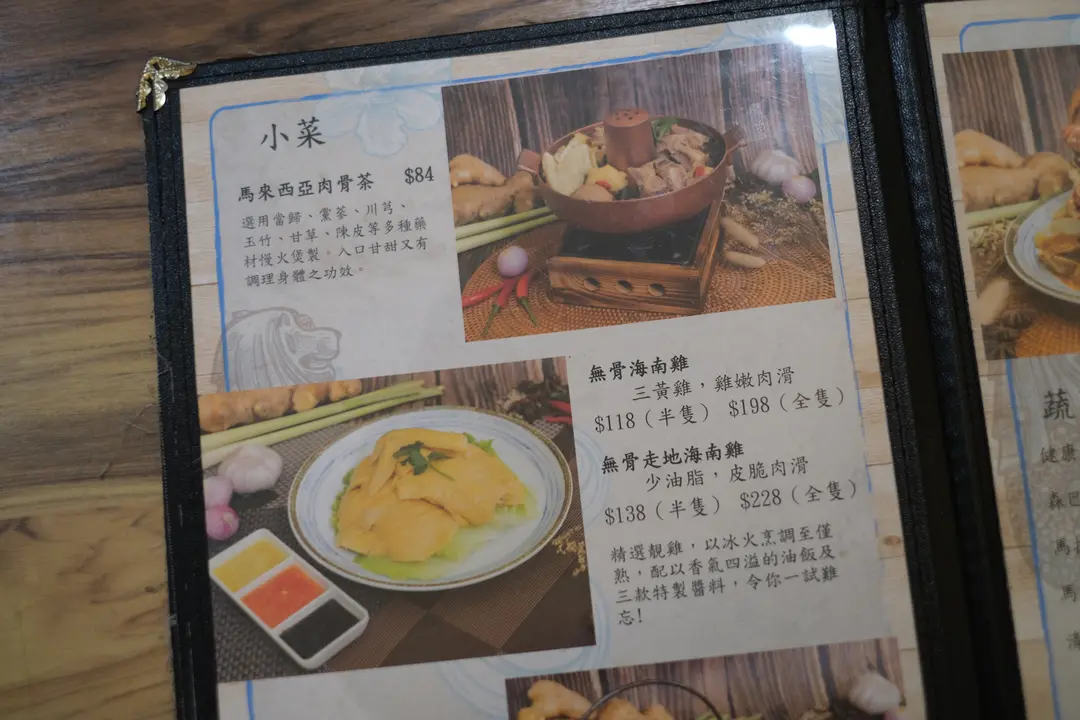 小菜
馬來西亞肉骨茶 $84
選用當歸、黨蔘、川芎、
玉竹、甘草、陳皮等多種藥
材慢火煲製。入口甘甜又有
調理身體之功效。
無骨海南雞
三黃雞，雞嫩肉滑
$118（半隻） $198（全隻）
無骨走地海南雞
少油脂，皮脆肉滑
$138（半隻） $228（全隻）
精選靚雞，以冰火烹調至僅
熟，配以香氣四溢的油飯及
三款特製醬料，令你一試難
忘!
蔬
健康
森巴
馬